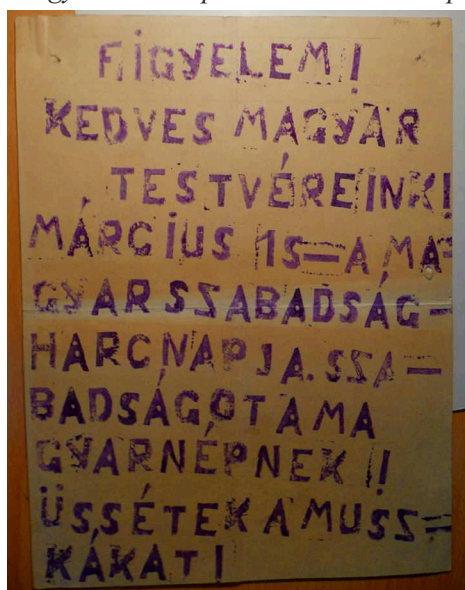 FIGYELEM!
KEDVES MAGYAR
TESTVÉREINK!
MÁRCIUS 15=A MA-
GYAR SZABADSÁG-
HARC NAPJA. SZA=
BADSÁGOT A MA
GYARNÉPNEK!
ÜSSÉTEK A MUSZ=
KÁKAT!